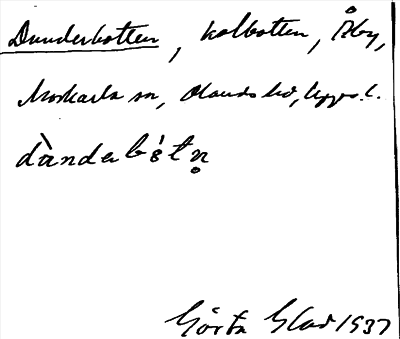 Dunderbotten, kolbotten, Åby,
Morkarla sn, Olands hd, Upps. l.
dùndǝbótn̥
Gösta Glad 1937